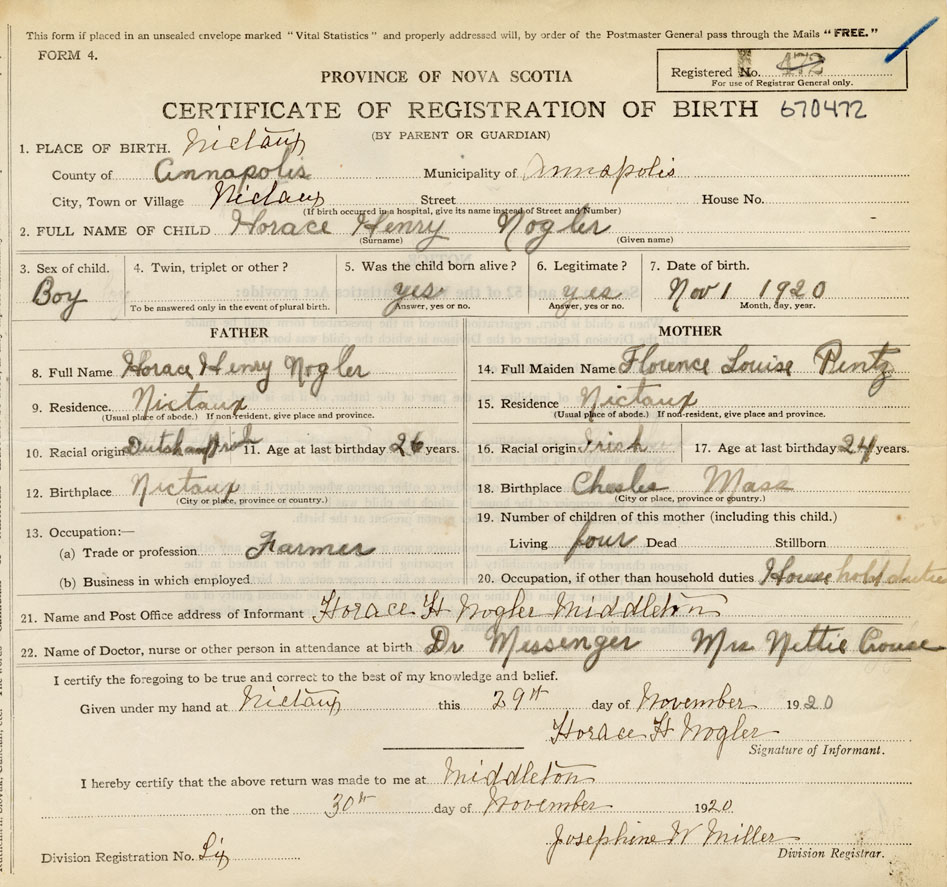 This form if placed in an unsealed envelope marked "Vital Statistics" and properly addressed will, by order of the Postmaster General pass through the Mails "FREE."
FORM 4.
Registered No. 472
For use of Registrar General only.
PROVINCE OF NOVA SCOTIA
CERTIFICATE OF REGISTRATION OF BIRTH 670472
(BY PARENT OR GUARDIAN)
1. PLACE OF BIRTH. Nictaux
County of Annapolis Municipality of Annapolis
City, Town or Village Nictaux Street House No.
(If birth occurred in a hospital, give its name instead of Street and Number)
2. FULL NAME OF CHILD Horace Henry Nogler
(Surname) (Given name)
3. Sex of child. 4. Twin, triplet or other? 5. Was the child born alive? 6. Legitimate? 7. Date of birth.
Boy yes yes Nov 1 1920
To be answered only in the event of plural birth. Answer, yes or no. Answer, yes or no. Month, day, year.
FATHER
8. Full Name Horace Henry Nogler
9. Residence. Nictaux
(Usual place of abode.) If non-resident, give place and province.
10. Racial origin Dutch 11. Age at last birthday 26 years.
12. Birthplace Nictaux
(City or place, province or country.)
13. Occupation:—
(a) Trade or profession Farmer
(b) Business in which employed
MOTHER
14. Full Maiden Name Florence Louise Rentz
15. Residence Nictaux
(Usual place of abode.) If non-resident, give place and province.
16. Racial origin Irish 17. Age at last birthday 24 years.
18. Birthplace Mass
(City or place, province or country.)
19. Number of children of this mother (including this child.)
Living four Dead Stillborn
20. Occupation, if other than household duties House hold duties
21. Name and Post Office address of Informant Horace H Nogler Middleton
22. Name of Doctor, nurse or other person in attendance at birth Dr Messenger Mrs Nettie Crouse
I certify the foregoing to be true and correct to the best of my knowledge and belief.
Given under my hand at Nictaux this 29th day of November 1920
Horace H Nogler
Signature of Informant.
I hereby certify that the above return was made to me at Middleton
on the 30th day of November 1920
Josephine W Miller
Division Registration No. Six Division Registrar.